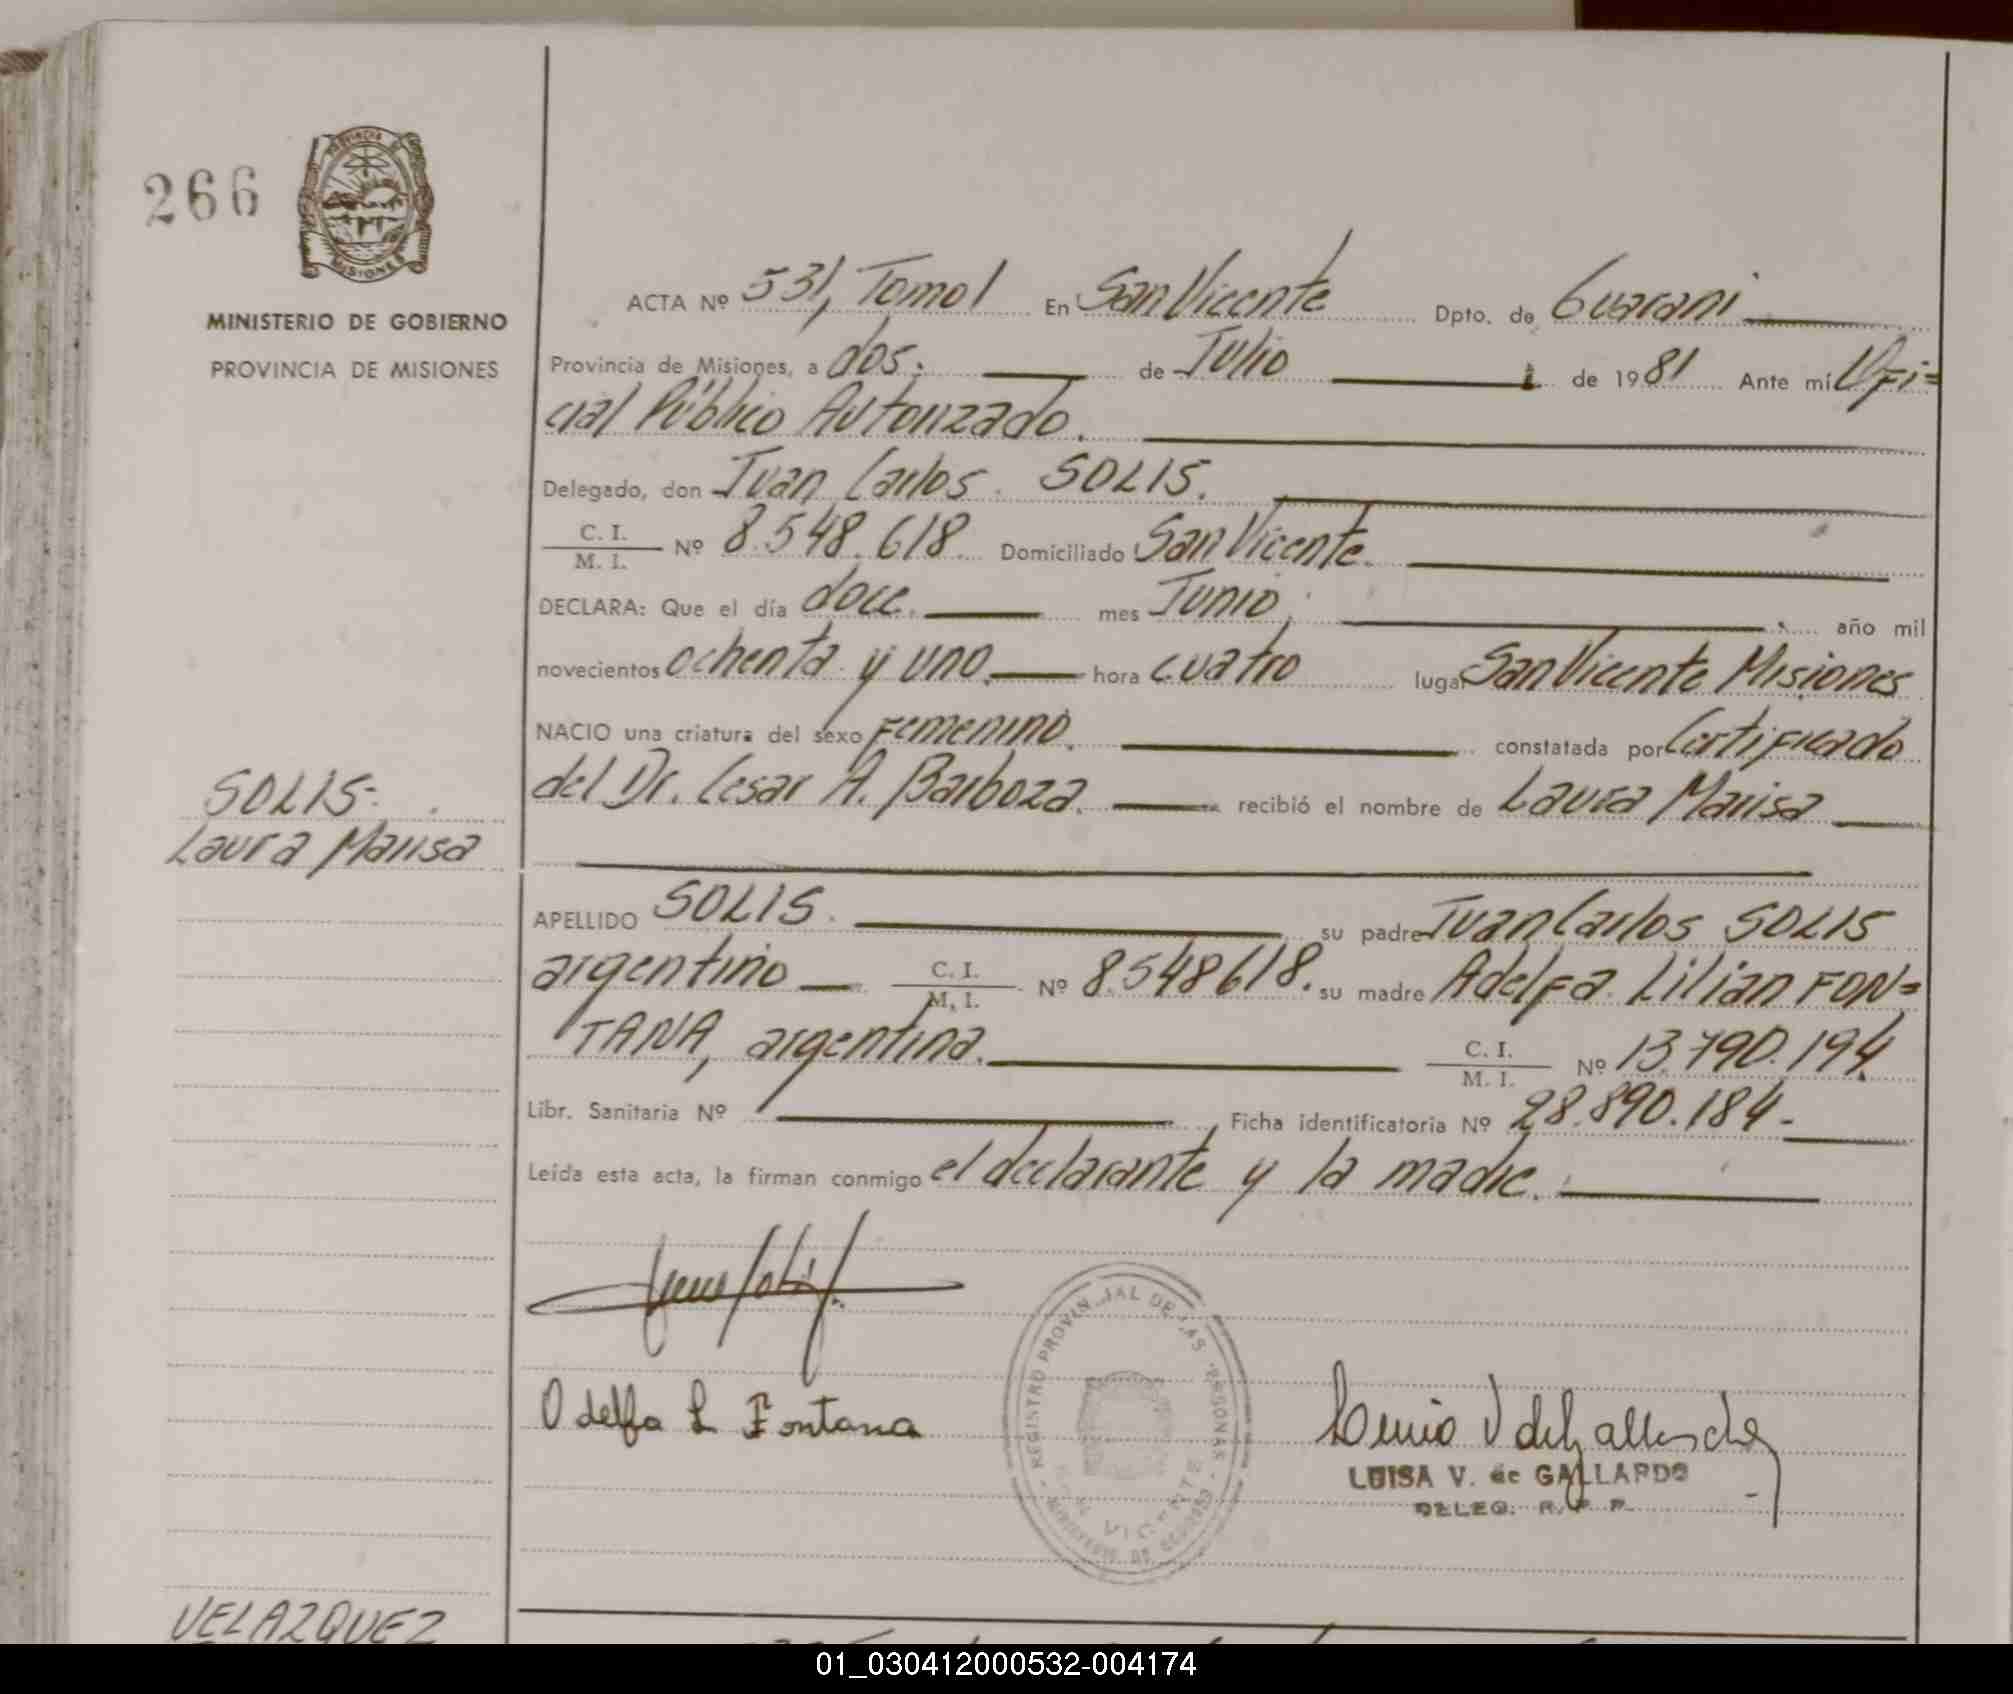 266
PROVINCIA DE
MISIONES
MINISTERIO DE GOBIERNO
PROVINCIA DE MISIONES
ACTA Nº 531, Tomo I En San Vicente Dpto. de Guarani
Provincia de Misiones, a dos. de Julio de 1981 Ante mí Ofi=
cial Público Autorizado.
Delegado, don Juan Carlos SOLIS.
C. I.
M. I. Nº 8.548.618 Domiciliado San Vicente.
DECLARA: Que el día doce. mes Junio, año mil
novecientos ochenta y uno. hora cuatro lugar San Vicente Misiones
NACIO una criatura del sexo Femenino. constatada por Certificado
del Dr. Cesar A. Barboza. recibió el nombre de Laura Marisa
SOLIS-
Laura Marisa
APELLIDO SOLIS. su padre Juan Carlos SOLIS
argentino C. I.
M. I. Nº 8.548618. su madre Adelfa Lilian FON=
TANA, argentina. C. I.
M. I. Nº 13.790.194
Libr. Sanitaria Nº Ficha identificatoria Nº 28.890.184-
Leída esta acta, la firman conmigo el declarante y la madre.
Odelfa L Fontana
REGISTRO PROVINCIAL DE LAS PERSONAS
VICENTE
MINISTERIO DE GOBIERNO
LUISA V. de GALLARDO
DELEG. R. P. P.
VELAZQUEZ
01_030412000532-004174